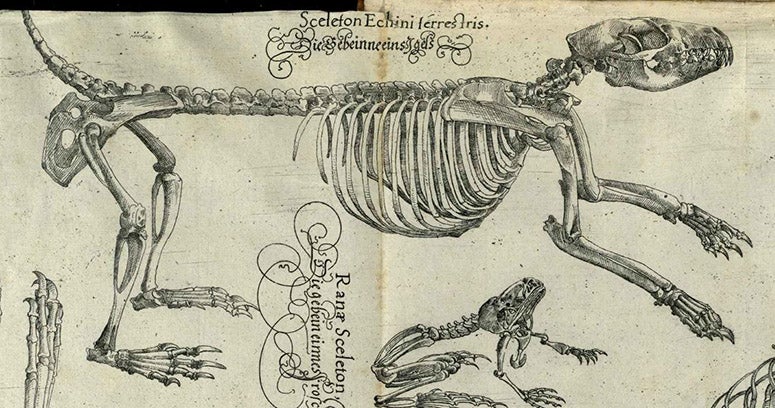 Sceleton Echini terrestris.
Die Gebeinne eins Igels
Ranæ Sceleton,
Die gebein eines frosc